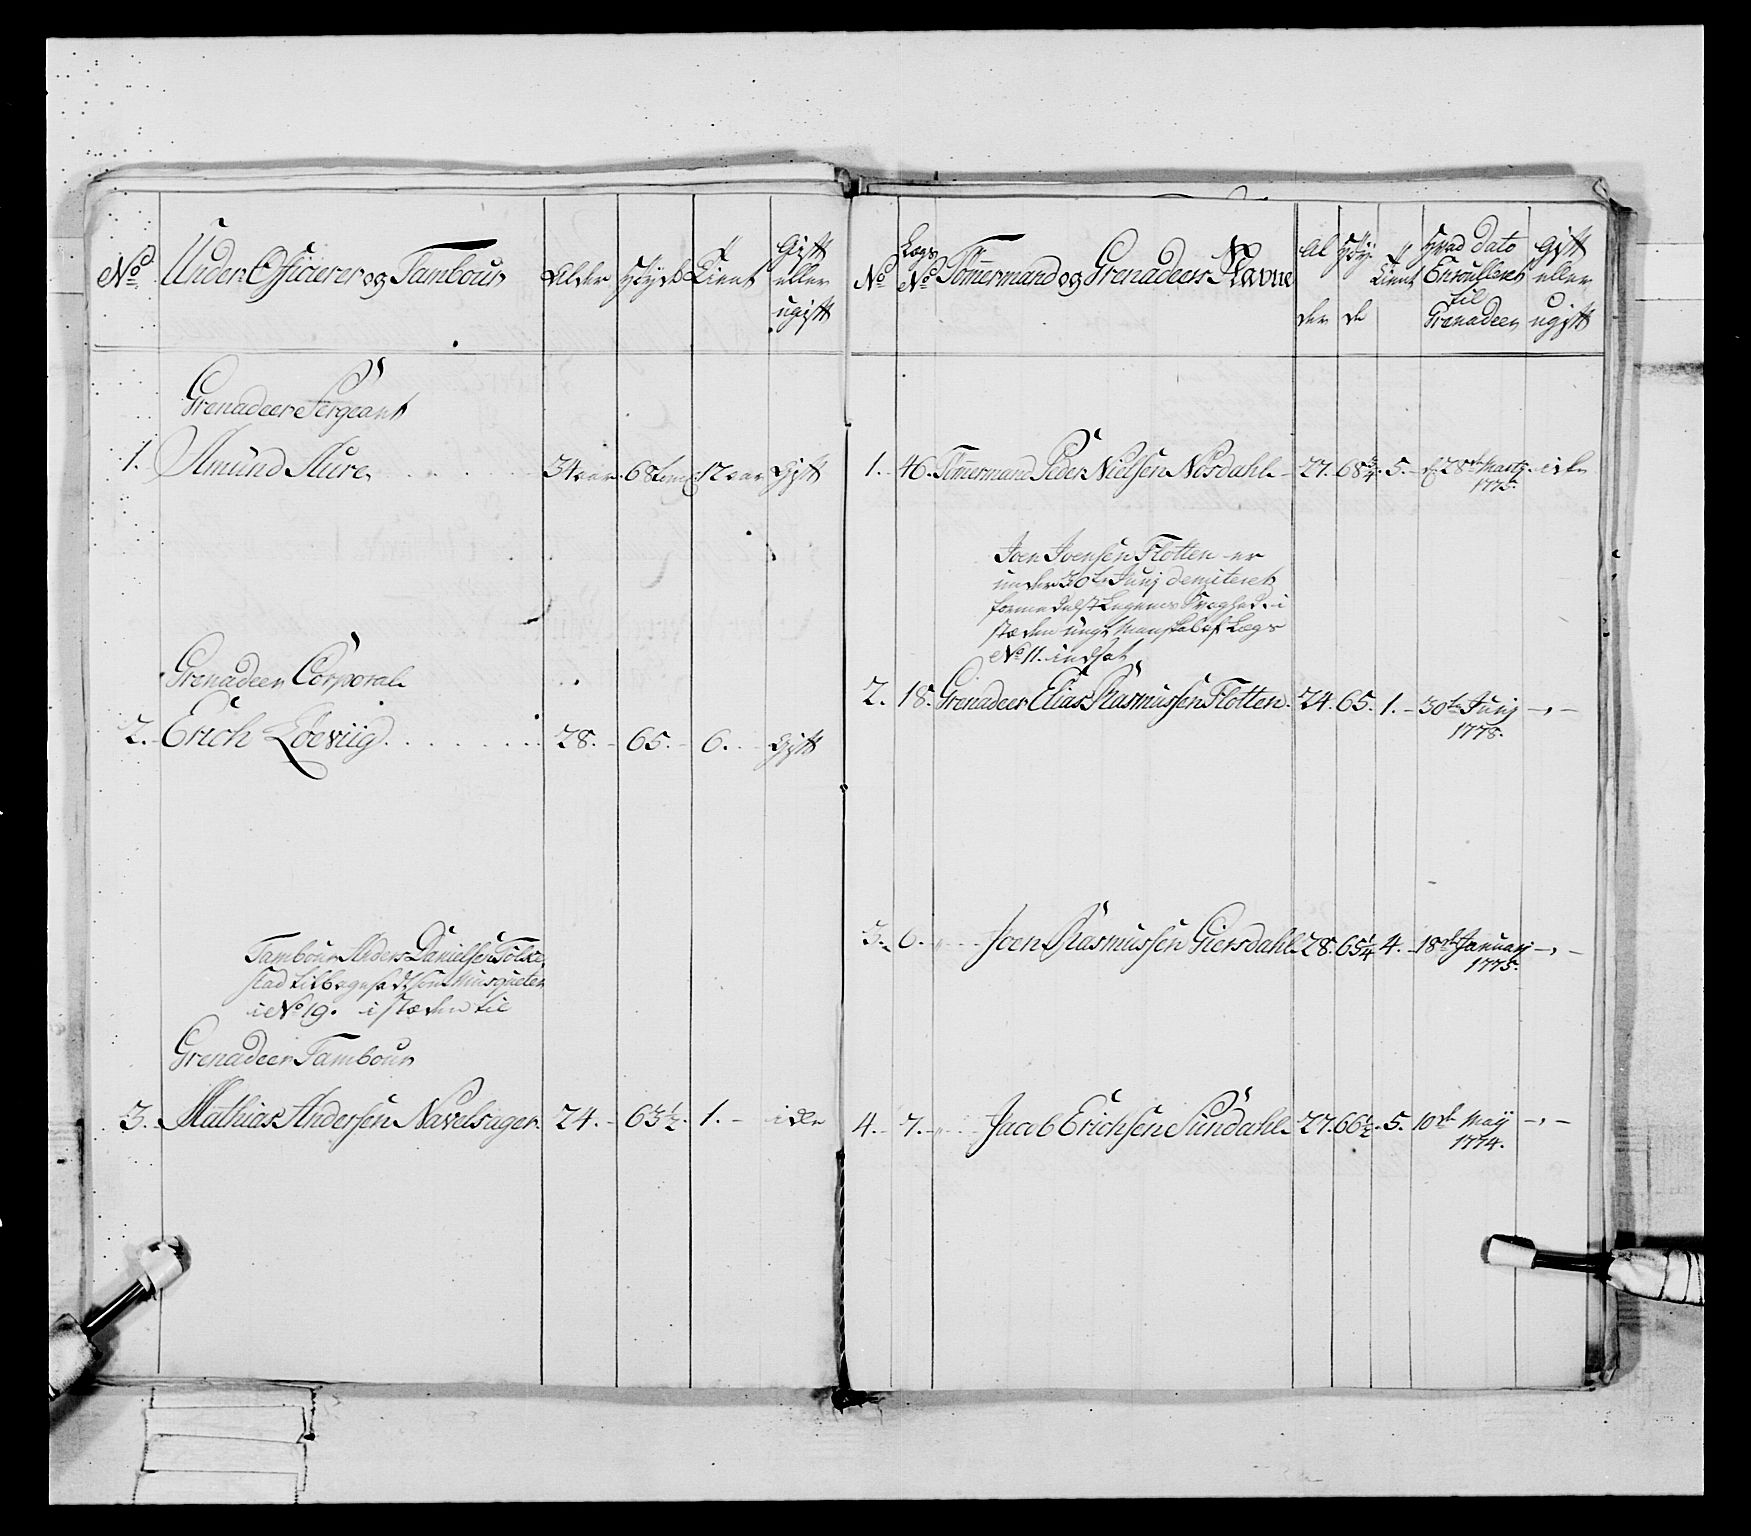 No
Under Officerer og Tambour
Alder
Høyde
Tient
Gift
eller
ugift
Grenadeer Sergeant
1. Amund Aure 34 aar 68 tom 12 aar Gift
Grenadeer Corporal
2. Erich Loeviig 28. 65. 6. Gift
Tambour Anders Danielsen
stad tilbagesadt som Musqueteer
i No 19. i stæden til
Grenadeer Tambour
3. Mathias Andersen Navelsager 24. 63 1/2. 1.
No
Lægs
No
Tømmermand og Grenadeers Navne
Al
der
Høy
de
Tient
Hvad dato
Enroulleret
til
Grenadeer
Gift
eller
ugift
1. 46. Tømmermand Peder Nielsen Nosdahl 27. 68 3/4 5. d 28de Marty
1775.
Joen Joensen Flotten er
under 30te Junj demiteret
formedelst Legems Svaghed. i
stæden ungt Manskab af Lægs
No 11. indsat
2. 18. Grenadeer Elias Rasmussen Flotten 24. 65. 1. 30te Junj
1778.
3. 6. Joen Rasmussen Giersdahl 28. 65 1/4 4. 18de Januarj
1775.
4. 7. Jacob Erichsen Sundahl 27. 66 1/2. 5. 10de Maij
1774.